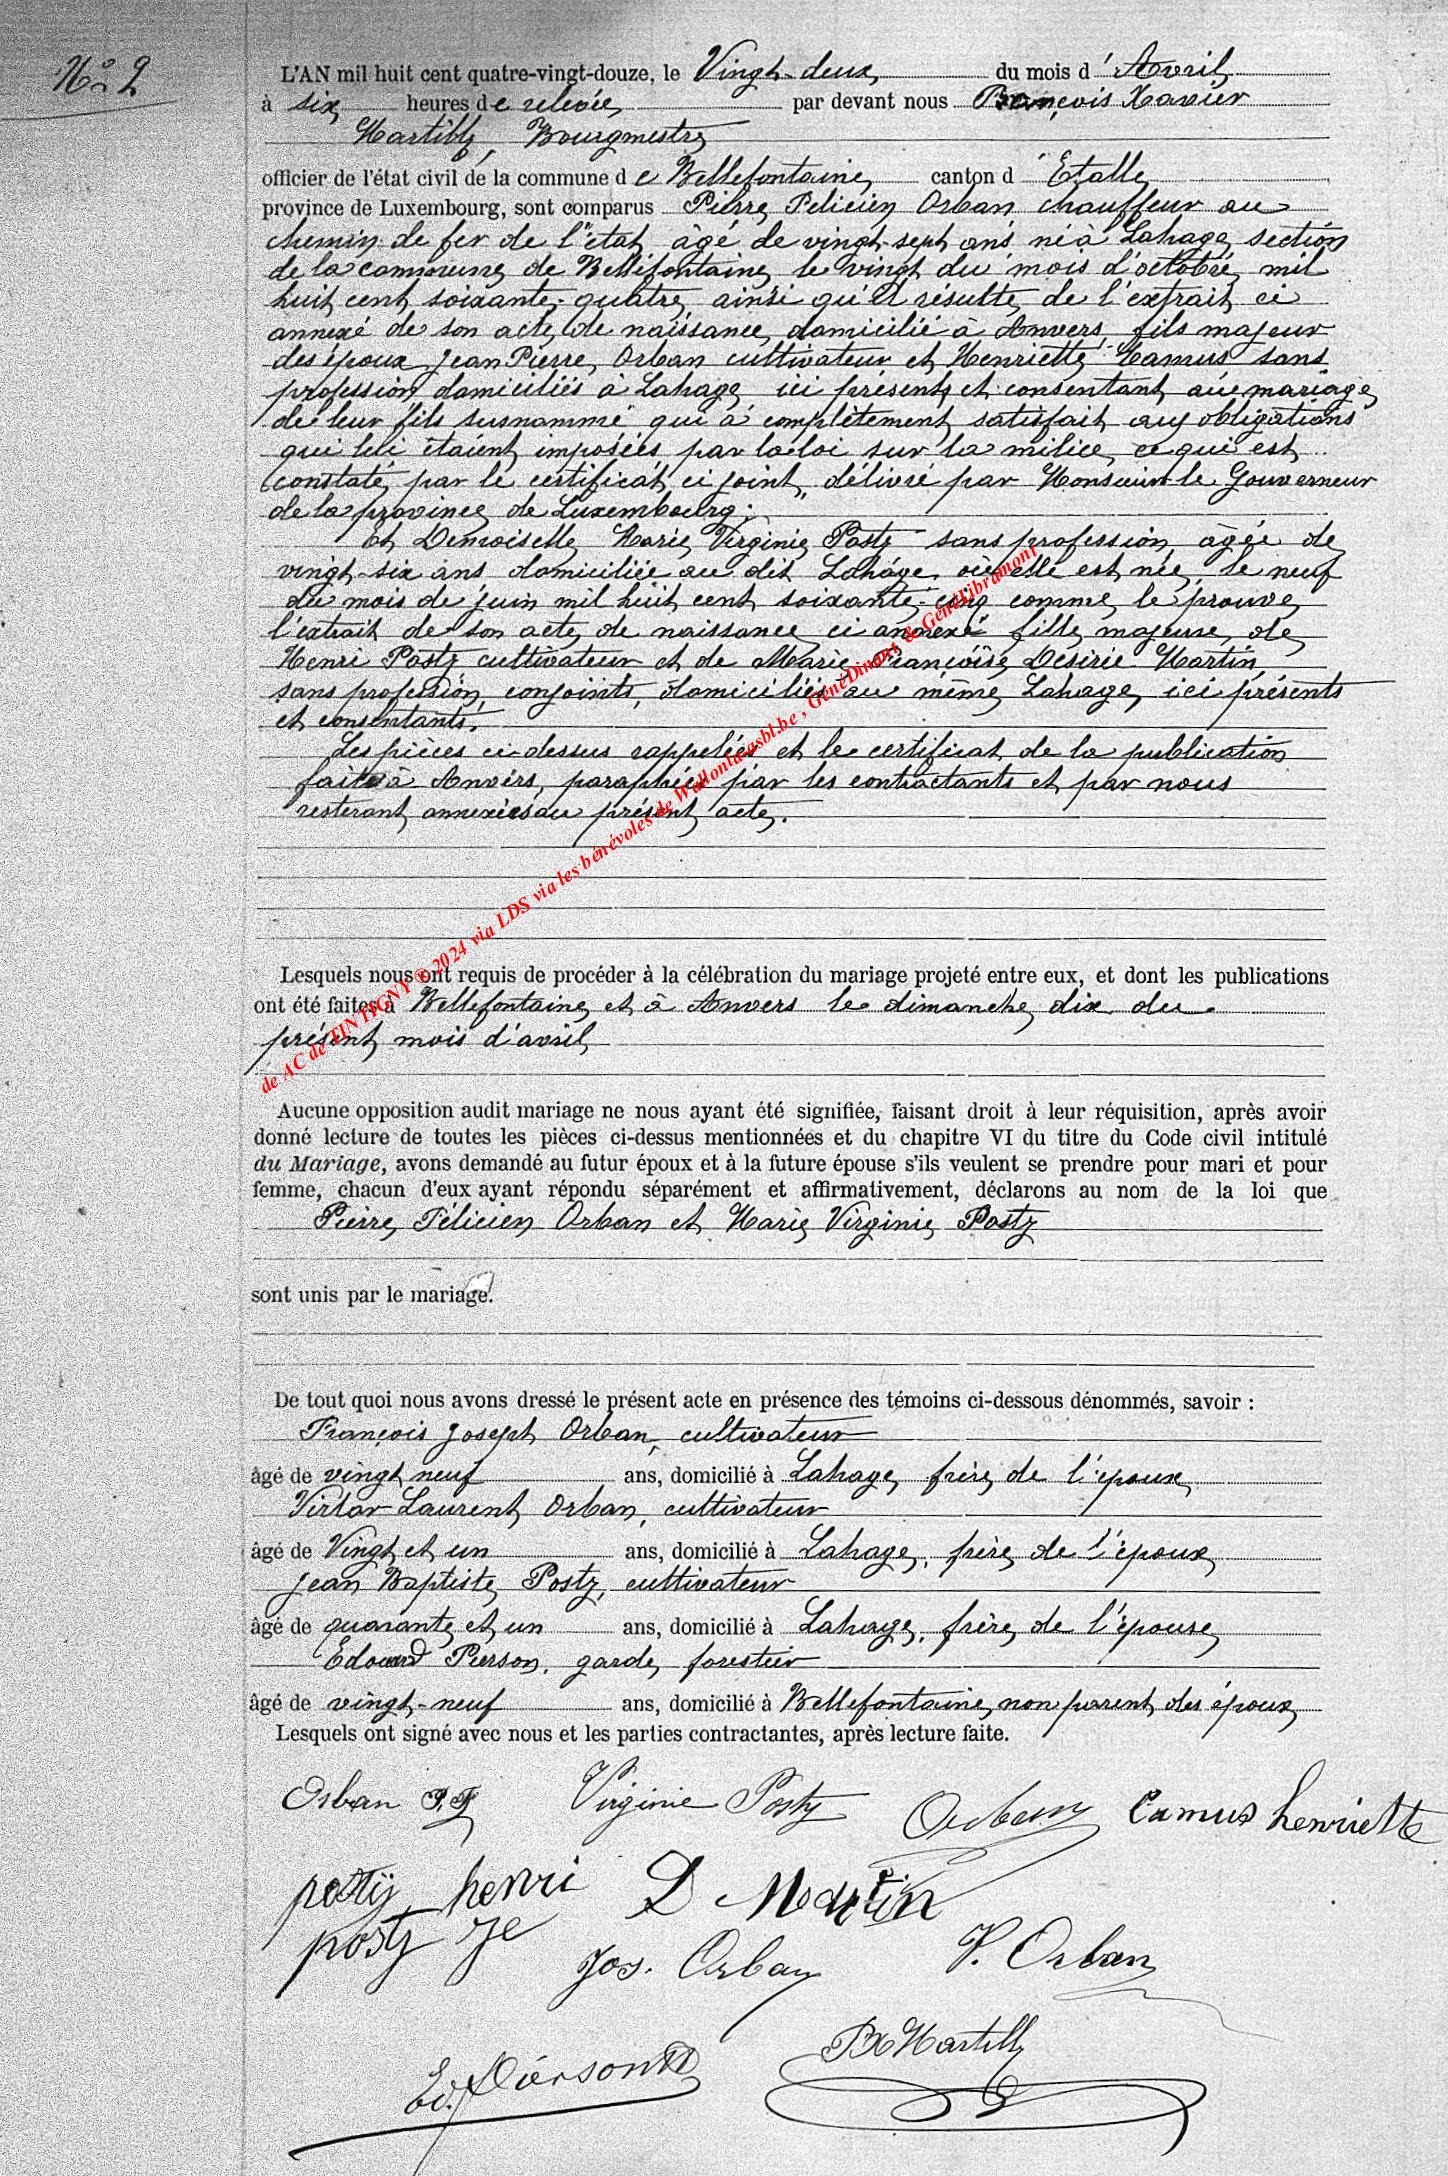 N° 2
L'AN mil huit cent quatre-vingt-douze, le Vingt-deux du mois d'Avril
à six heures de relevée par devant nous François Xavier
Hartibly, Bourgmestre
officier de l'état civil de la commune de Bellefontaine canton d'Etalle
province de Luxembourg, sont comparus Pierre Felicien Orban chauffeur au
chemin de fer de l'état âgé de vingt-sept ans né à Lahage section
de la commune de Bellefontaine le vingt du mois d'octobre mil
huit cent soixante-quatre ainsi qu'il résulte de l'extrait ci
annexé de son acte de naissance, domicilié à Anvers, fils majeur
des époux Jean Pierre Orban cultivateur et Henriette Camus sans
profession domiciliés à Lahage ici présents et consentant au mariage
de leur fils susnommé qui a complètement satisfait aux obligations
qui lui étaient imposées par la loi sur la milice, ce qui est
constaté par le certificat ci joint, délivré par Monsieur le Gouverneur
de la province de Luxembourg;
Et Demoiselle Marie Virginie Posty sans profession, âgée de
vingt-six ans domiciliée au dit Lahage, où elle est née, le neuf
du mois de juin mil huit cent soixante-cinq comme le prouve
l'extrait de son acte de naissance ci annexé fille majeure de
Henri Posty cultivateur et de Marie Françoise Désirée Martin
sans profession, conjoints, domiciliés au même Lahage, ici présents
et consentants.
Les pièces ci-dessus rappelées et le certificat de la publication
faite à Anvers, paraphées par les contractants et par nous
resteront annexées au présent acte.
Lesquels nous ont requis de procéder à la célébration du mariage projeté entre eux, et dont les publications
ont été faites à Bellefontaine et à Anvers le dimanche dix du
présent mois d'avril
Aucune opposition audit mariage ne nous ayant été signifiée, faisant droit à leur réquisition, après avoir
donné lecture de toutes les pièces ci-dessus mentionnées et du chapitre VI du titre du Code civil intitulé
du Mariage, avons demandé au futur époux et à la future épouse s'ils veulent se prendre pour mari et pour
femme, chacun d'eux ayant répondu séparément et affirmativement, déclarons au nom de la loi que
Pierre Félicien Orban et Marie Virginie Posty
sont unis par le mariage.
De tout quoi nous avons dressé le présent acte en présence des témoins ci-dessous dénommés, savoir :
François Joseph Orban, cultivateur
âgé de vingt neuf ans, domicilié à Lahage, frère de l'époux
Victor Laurent Orban, cultivateur
âgé de Vingt et un ans, domicilié à Lahage, frère de l'époux
Jean Baptiste Posty, cultivateur
âgé de quarante et un ans, domicilié à Lahage, frère de l'épouse
Edouard Pierson, garde forestier
âgé de vingt-neuf ans, domicilié à Bellefontaine, non parent des époux
Lesquels ont signé avec nous et les parties contractantes, après lecture faite.
Orban P. F. Virginie Posty Orban Camus henriette
posty henri D Martin
posty Je Jos. Orban V. Orban
Ed. Pierson
de AC de TINTIGNY ® 2024 via LDS via les bénévoles de Wallonia-asbl.be , GénéDinant & GénéLibramont